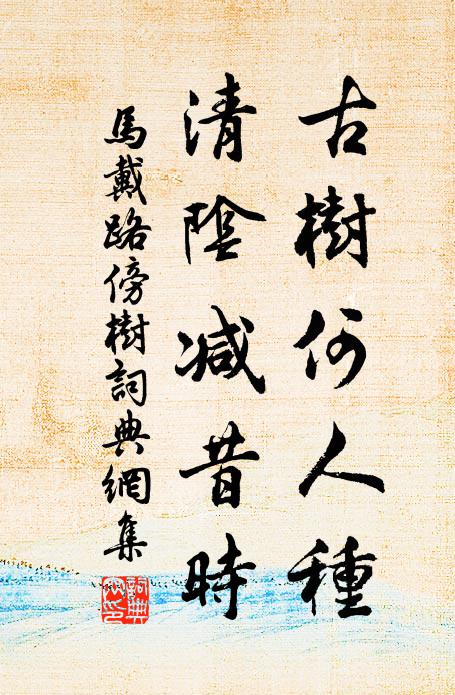 古樹何人種
清陰減昔時
馬戴路傍樹詞典網集